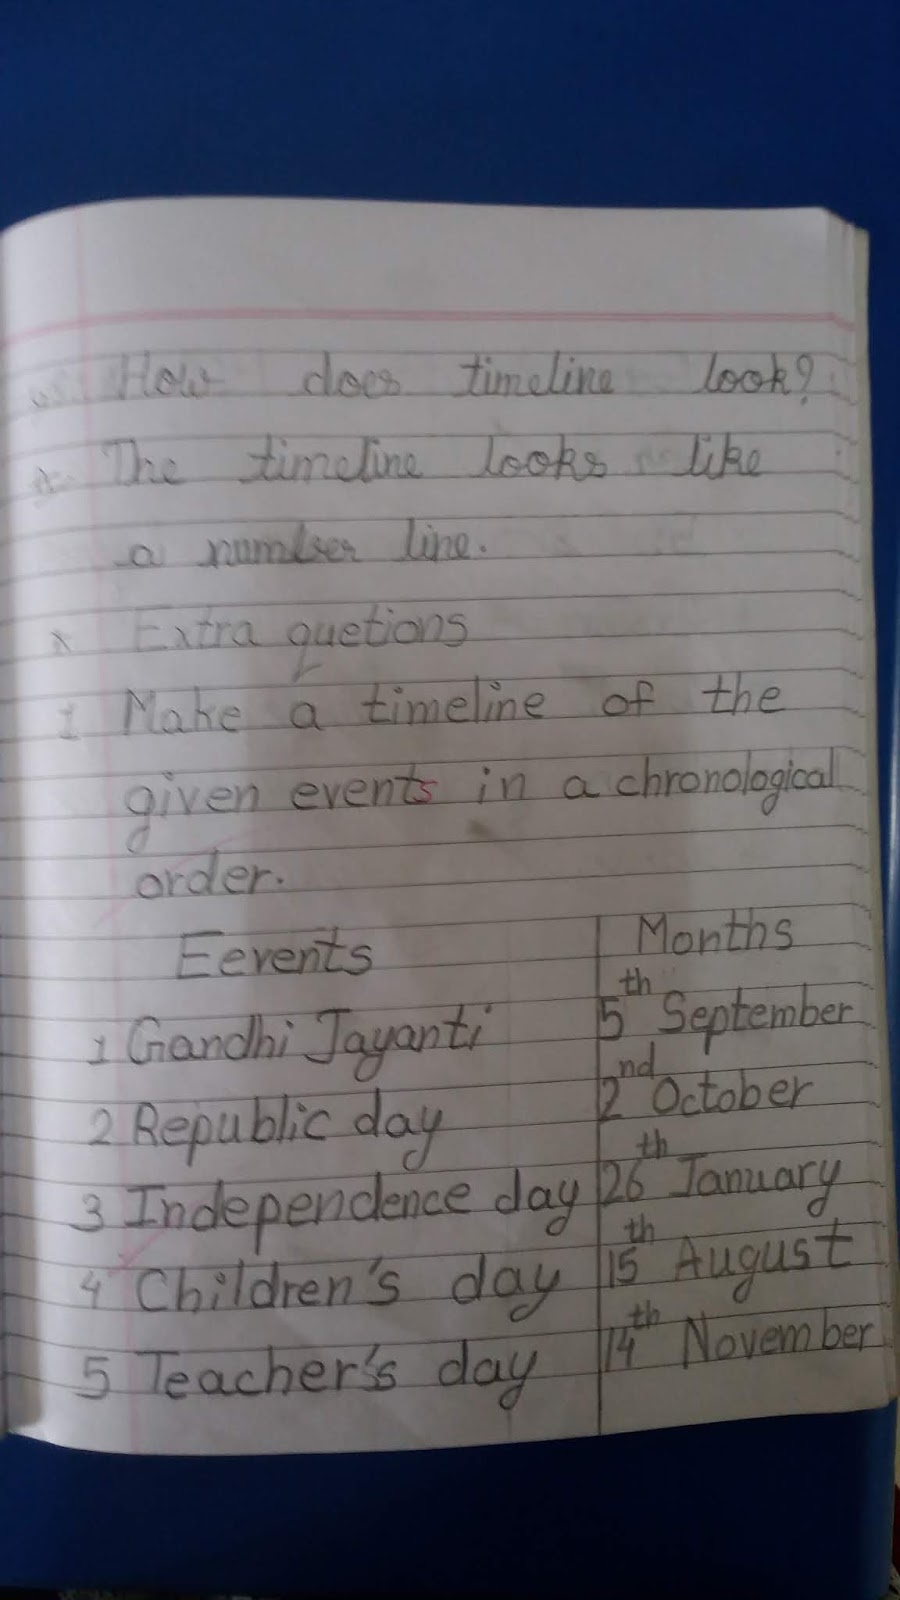 How does timeline look?
The timeline looks like
a number line.
x Extra quetions
1 Make a timeline of the
given events in a chronological
order.
Eevents Months
1 Gandhi Jayanti 5th September
2 Republic day 2nd October
3 Independence day 26th January
4 Children's day 15th August
5 Teacher's day 14th November